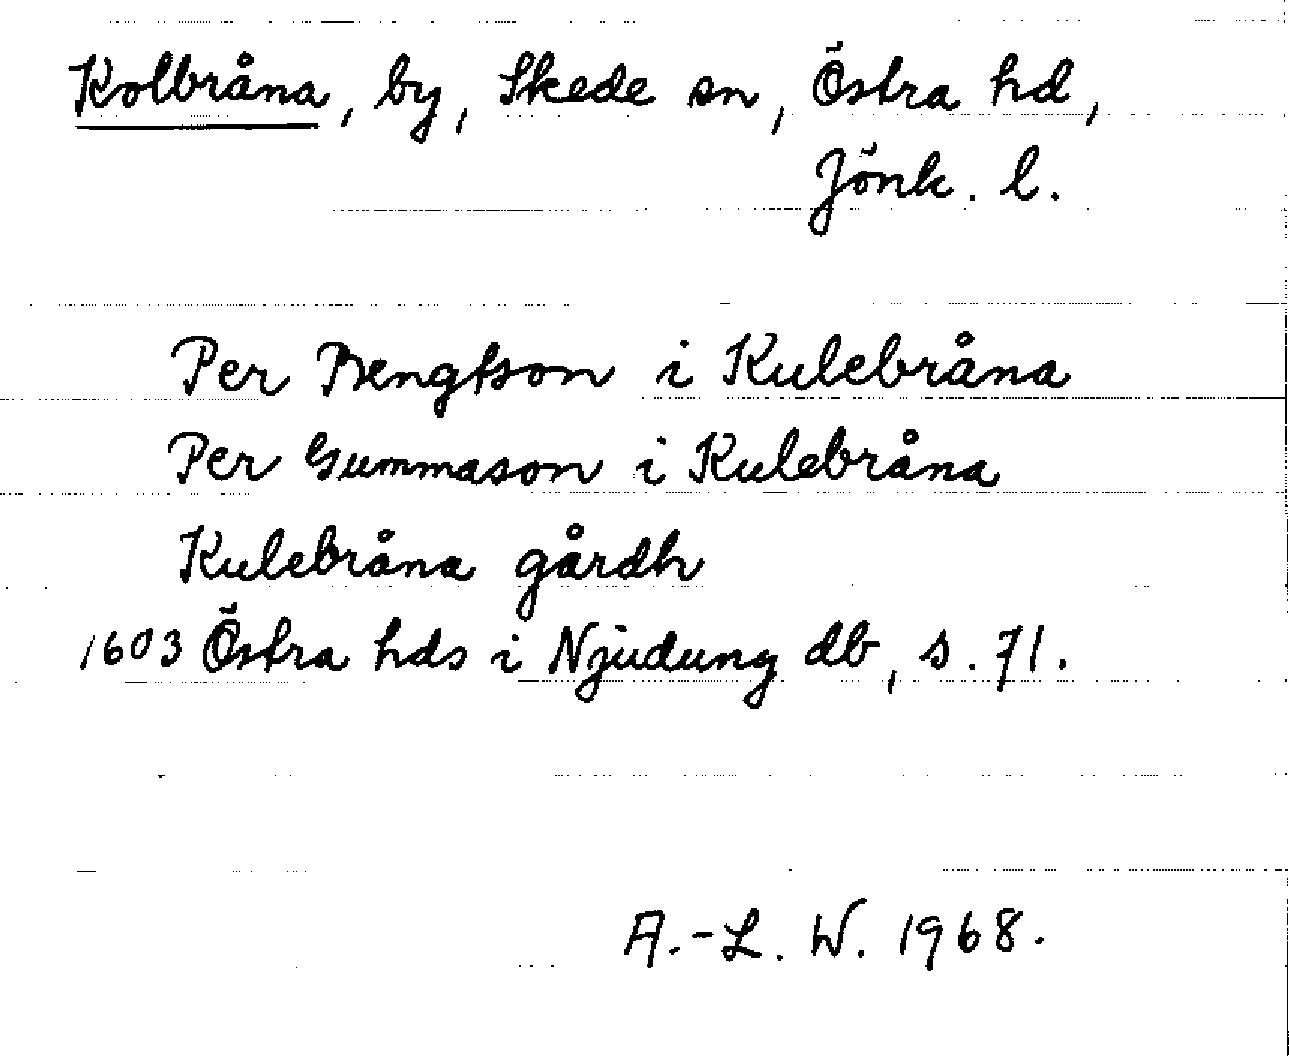 Kolbråna, by, Skede sn, Östra hd,
Jönk. l.
Per Bengtson i Kulebråna
Per Gummason i Kulebråna
Kulebråna gårdh
1603 Östra hds i Njudung db, s. 71.
A.-L. W. 1968.